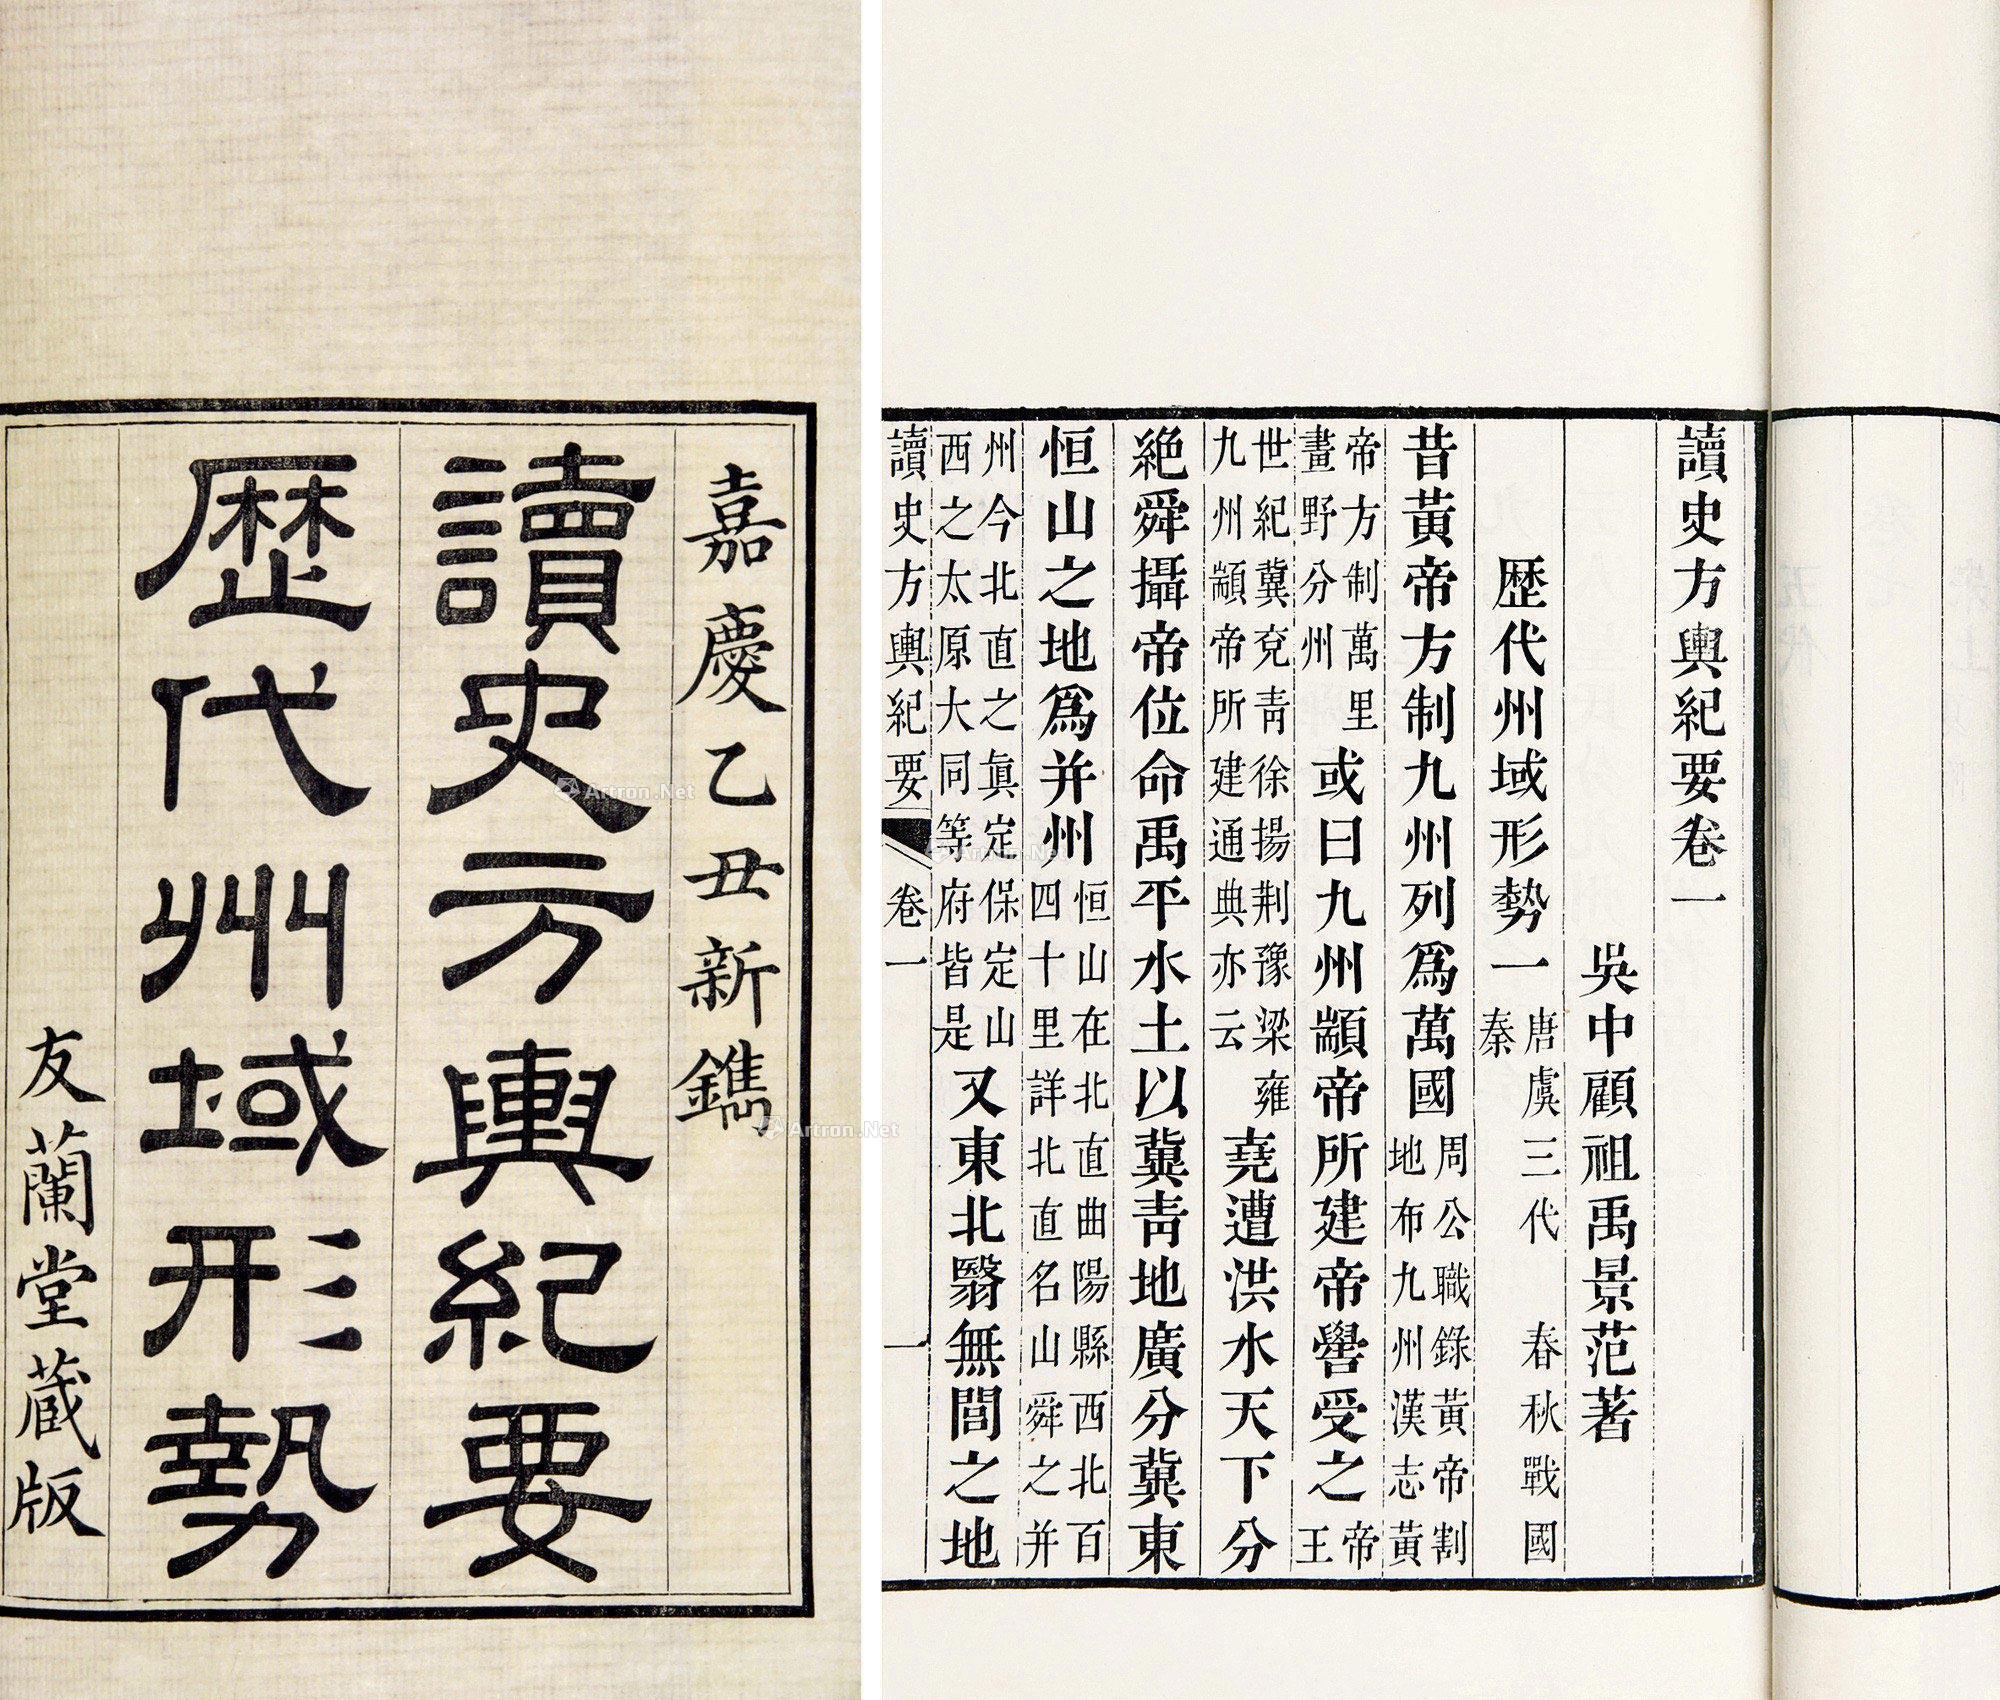 嘉慶乙丑新鐫
讀史方輿紀要
歴代州域形勢
友蘭堂蔵版
讀史方輿紀要卷一
吳中顧祖禹景范著
歴代州域形勢一 唐虞三代 春秋戰國 秦
昔黃帝方制九州列爲萬國 周公職錄黃帝割 地布九州漢志黃
帝方制萬里 畫野分州 或曰九州顓帝所建帝嚳受之 帝 王
世紀冀兗青徐揚荆豫梁雍 九州顓帝所建通典亦云 堯遭洪水天下分
絶舜攝帝位命禹平水土以冀青地廣分冀東
恒山之地爲并州 恒山在北直曲陽縣西北百 四十里詳北直名山舜之并
州今北直之眞定保定山 西之太原大同等府皆是 又東北翳無閭之地
讀史方輿紀要 卷一 一
Artron.Net
Artron.Net
Artron.Net